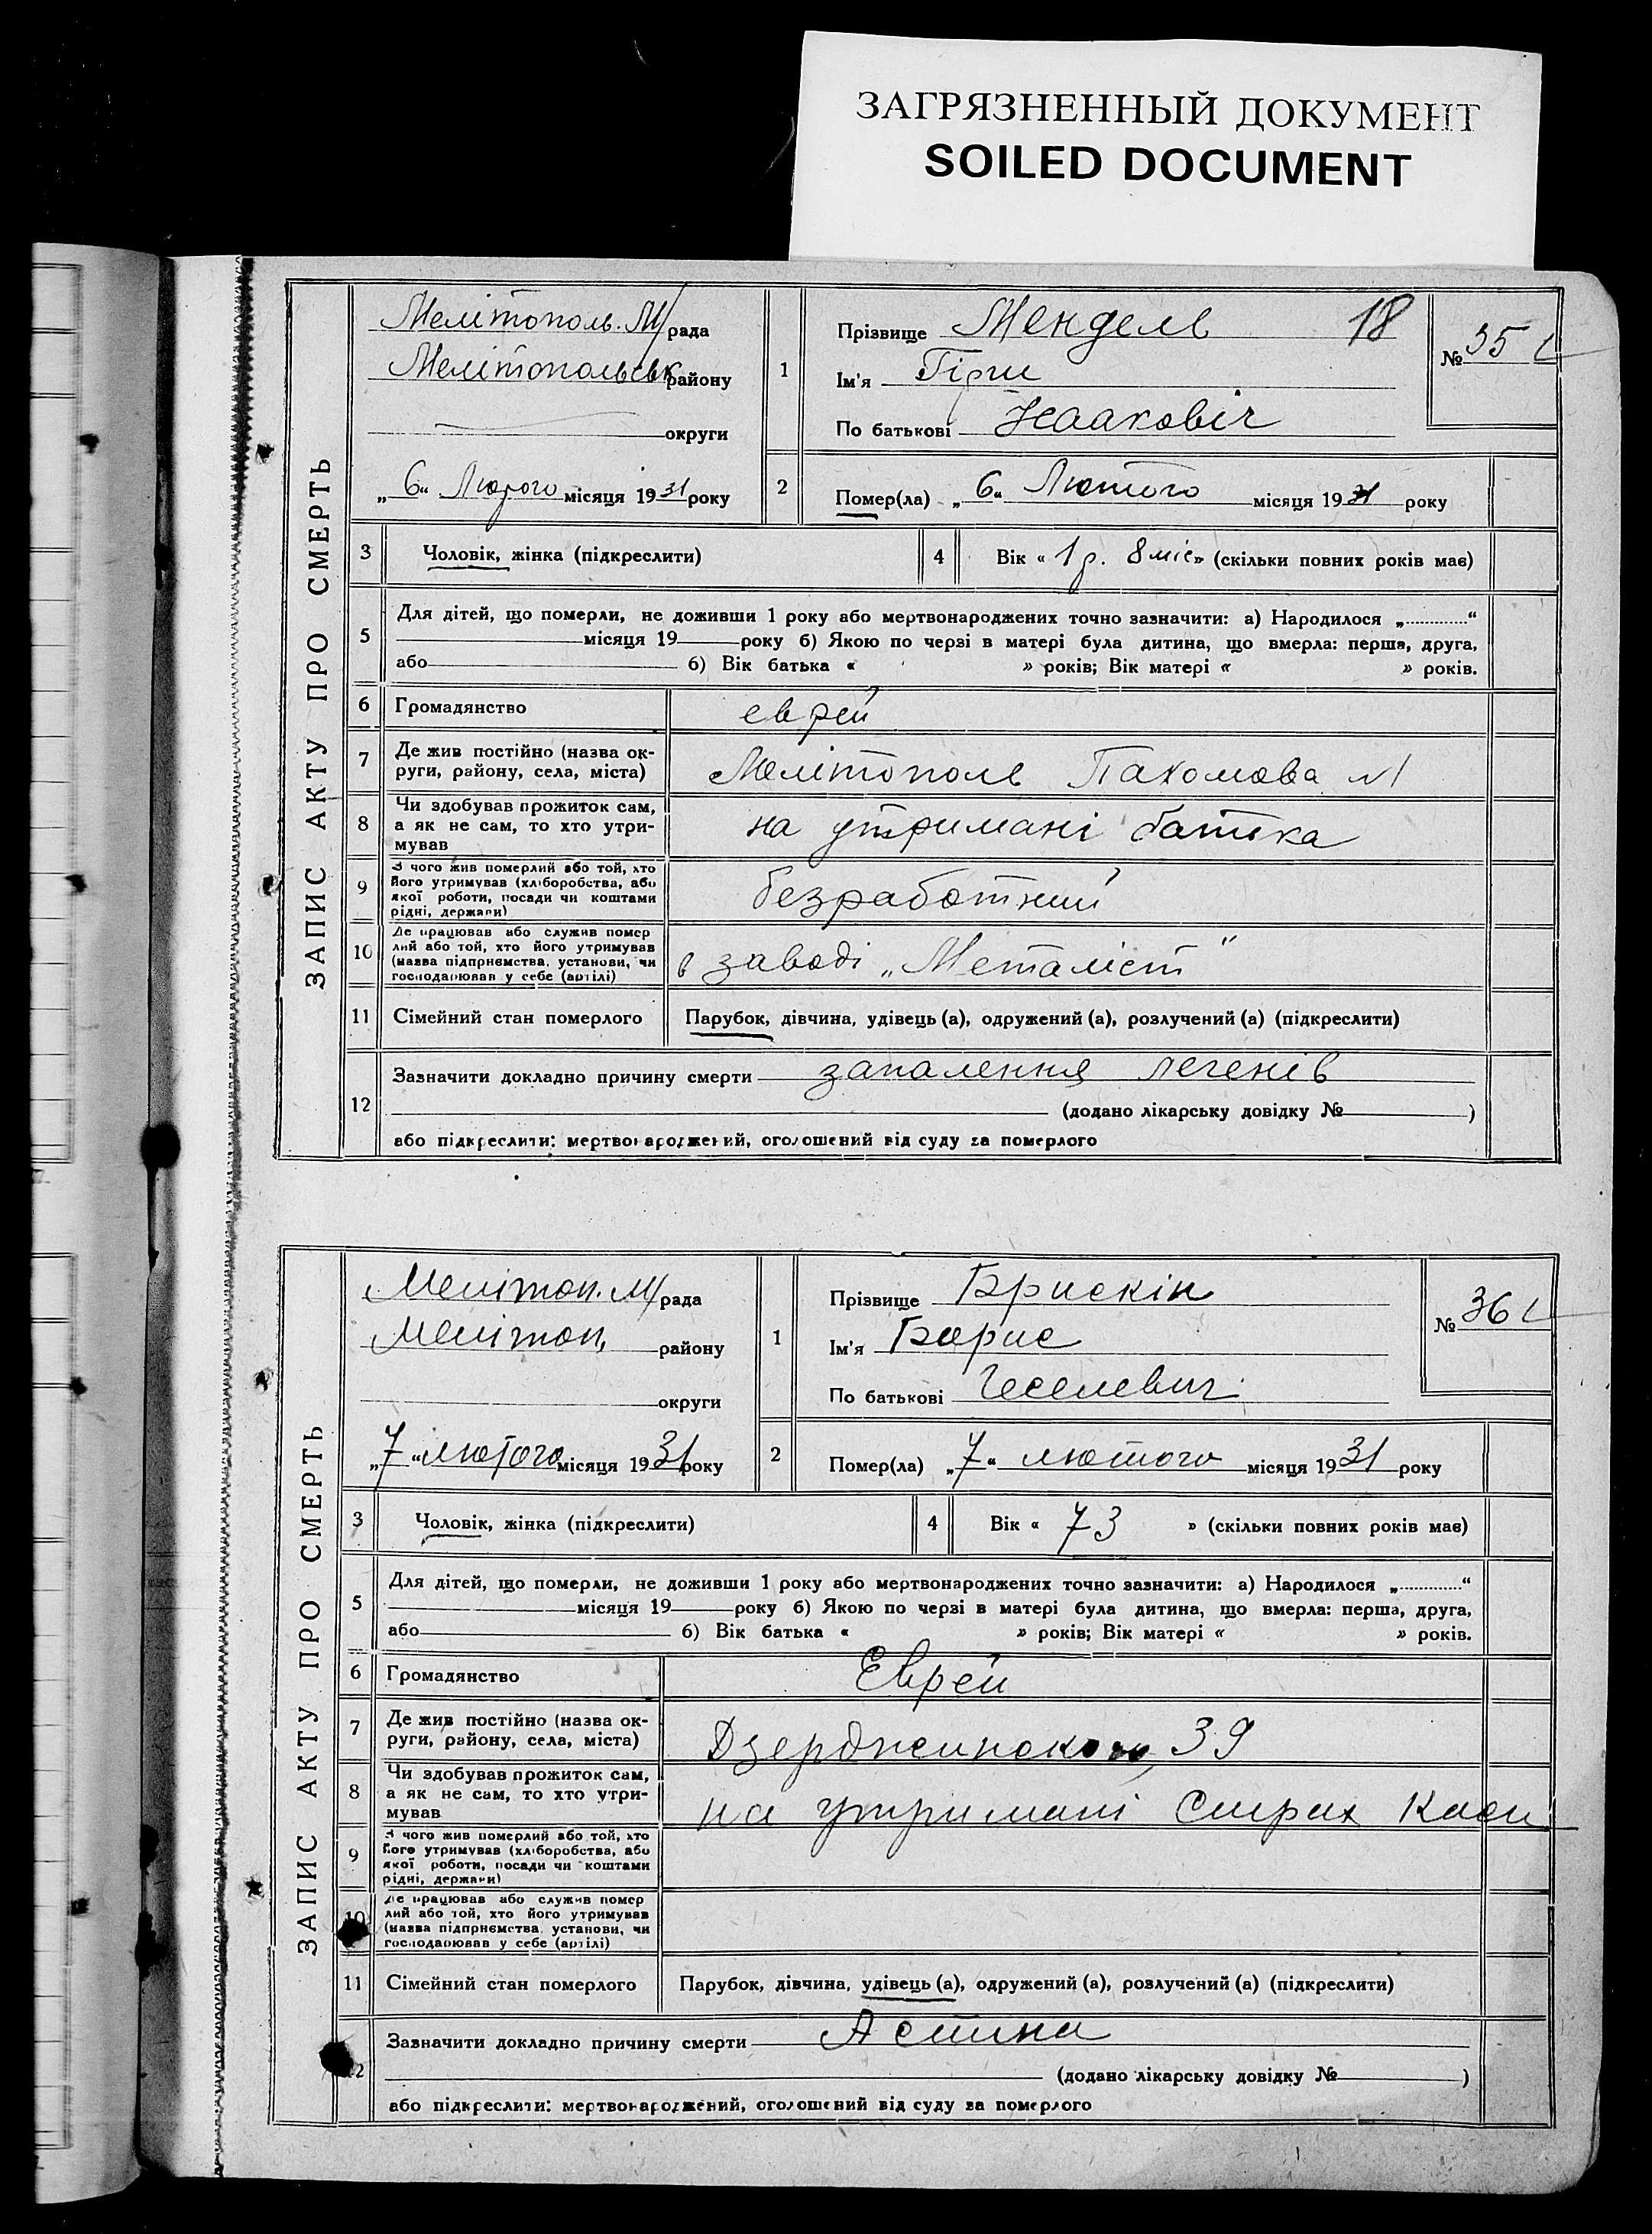 ЗАГРЯЗНЕННЫЙ ДОКУМЕНТ
SOILED DOCUMENT
ЗАПИС АКТУ ПРО СМЕРТЬ
Мелітополь. М/рада
Мелітопольськ району
округи
„6“ Лютого місяця 1931 року
1
Прізвище Мендель 18
Ім'я Гірш
По батькові
№ 35
2
Помер(ла) „6“ Лютого місяця 1931 року
3 Чоловік, жінка (підкреслити)
4 Вік « 1 р. 8 міс » (скільки повних років має)
5
Для дітей, що померли, не доживши 1 року або мертвонароджених точно зазначити: а) Народилося „............“
місяця 19 року б) Якою по черзі в матері була дитина, що вмерла: перша, друга,
або б) Вік батька « » років; Вік матері « » років.
6 Громадянство еврей
7 Де жив постійно (назва ок-
руги, району, села, міста)
Мелітополь Пахомова №1
8 Чи здобував прожиток сам,
а як не сам, то хто утри-
мував
на утримані батька
9 З чого жив померлий або той, хто
його утримував (хліборобства, або
якої роботи, посади чи коштами
рідні, держави)
безработний
10 Де працював або служив помер
лий або той, хто його утримував
(назва підприємства, установи, чи
господарював у себе (артілі)
в заводі „Металіст“
11 Сімейний стан померлого Парубок, дівчина, удівець (а), одружений (а), розлучений (а) (підкреслити)
12
Зазначити докладно причину смерти запалення легенів
(додано лікарську довідку № )
або підкреслити: мертвонароджений, оголошений від суду за померлого
ЗАПИС АКТУ ПРО СМЕРТЬ
Мелітоп. М/рада
Мелітоп. району
округи
„7“ лютого місяця 1931 року
1
Прізвище Брискін
Ім'я Борис
По батькові Геселевич
№ 36
2
Помер(ла) „7“ лютого місяця 1931 року
3 Чоловік, жінка (підкреслити)
4 Вік « 73 » (скільки повних років має)
5
Для дітей, що померли, не доживши 1 року або мертвонароджених точно зазначити: а) Народилося „............“
місяця 19 року б) Якою по черзі в матері була дитина, що вмерла: перша, друга,
або б) Вік батька « » років; Вік матері « » років.
6 Громадянство Еврей
7 Де жив постійно (назва ок-
руги, району, села, міста)
39
8 Чи здобував прожиток сам,
а як не сам, то хто утри-
мував
на утримані Страх Каси
9 З чого жив померлий або той, хто
його утримував (хліборобства, або
якої роботи, посади чи коштами
рідні, держави)
10 Де працював або служив помер
лий або той, хто його утримував
(назва підприємства, установи, чи
господарював у себе (артілі)
11 Сімейний стан померлого Парубок, дівчина, удівець (а), одружений (а), розлучений (а) (підкреслити)
12
Зазначити докладно причину смерти Астма
(додано лікарську довідку № )
або підкреслити: мертвонароджений, оголошений від суду за померлого